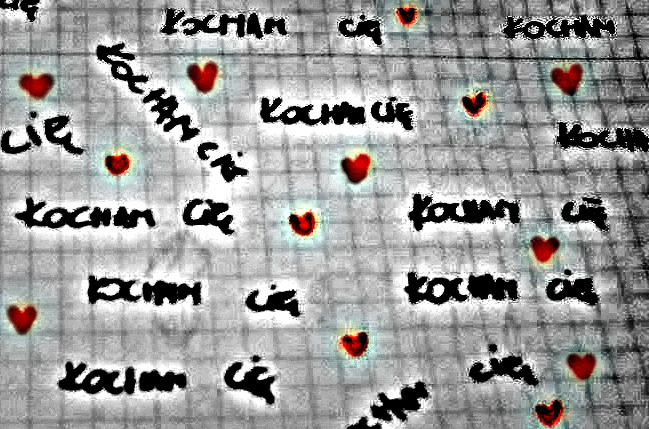 KOCHAM CIĘ
KOCHAM
CIĘ
KOCHAM CIĘ
KOCHAM CIĘ
KOCHAM CIĘ
KOCHAM CIĘ
KOCHAM CIĘ
KOCHAM CIĘ
KOCHAM CIĘ
CIĘ